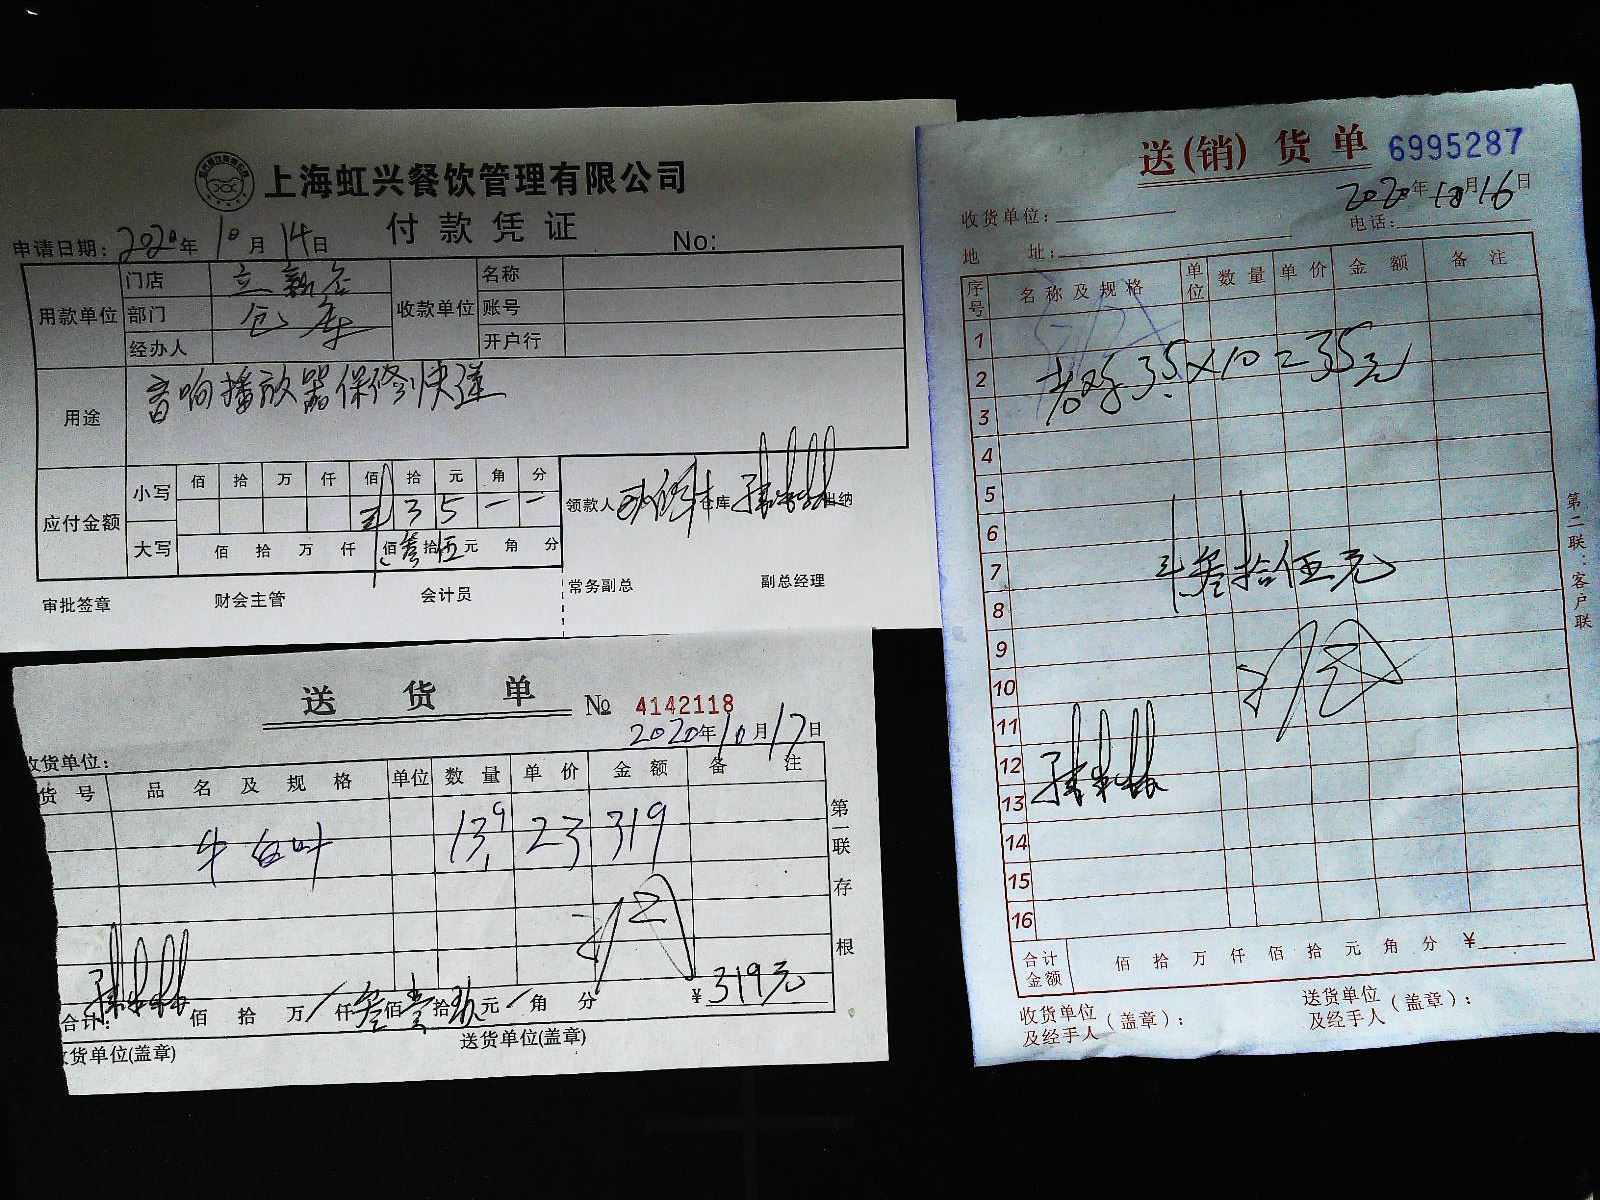 上海虹兴餐饮管理有限公司
付款凭证
申请日期：2020年10月14日 No:
用款单位 门店 收款单位 名称
部门 仓库 账号
经办人 开户行
用途 音响播放器保修快递
应付金额 小写 佰 拾 万 仟 佰 拾 元 角 分
¥ 3 5 — —
大写 佰 拾 万 仟 佰叁拾伍元 角 分
领款人 仓库 出纳
审批签章 财会主管 会计员 常务副总 副总经理
送货单 № 4142118
2020年10月17日
收货单位：
货号 品名及规格 单位 数量 单价 金额 备注
牛百叶 13.9 23 319
合计： 佰 拾 万 仟叁佰壹拾玖元 角 分 ¥ 319元
收货单位(盖章) 送货单位(盖章)
第一联 存根
送(销)货单 6995287
2020年10月16日
收货单位：
电话：
地址：
序号 名称及规格 单位 数量 单价 金额 备注
1
2
3.5×10=35元
3
4
5
6
7
叁拾伍元
8
9
10
11
12
13
14
15
16
合计金额 佰 拾 万 仟 佰 拾 元 角 分 ¥
收货单位及经手人(盖章)： 送货单位及经手人(盖章)：
第二联：客户联